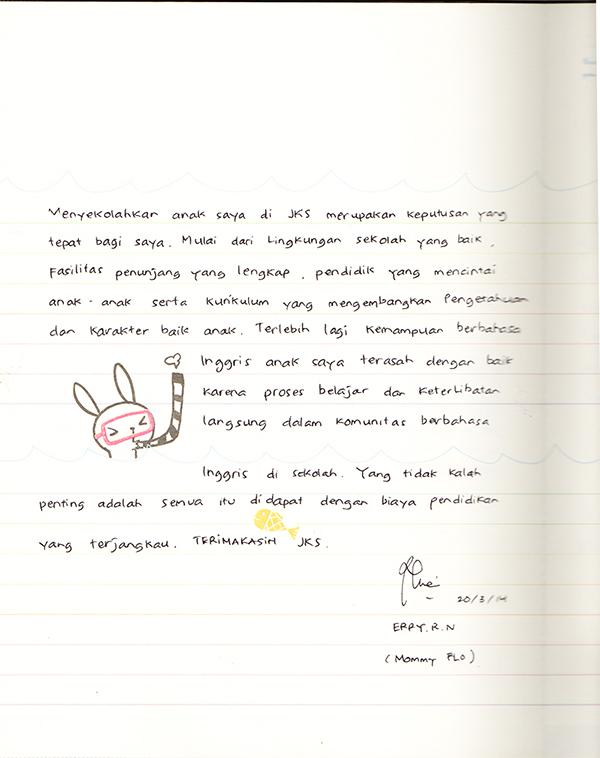 Menyekolahkan anak saya di JKS merupakan keputusan yang
tepat bagi saya. Mulai dari Lingkungan sekolah yang baik,
Fasilitas penunjang yang lengkap, pendidik yang mencintai
anak-anak serta kurikulum yang mengembangkan Pengetahuan
dan karakter baik anak. Terlebih lagi kemampuan berbahasa
Inggris anak saya terasah dengan baik
karena proses belajar dan keterlibatan
langsung dalam komunitas berbahasa
Inggris di sekolah. Yang tidak kalah
penting adalah semua itu didapat dengan biaya pendidikan
yang terjangkau. TERIMAKASIH JKS.
20/3/14
ERRY.R.N
(Mommy FLO)